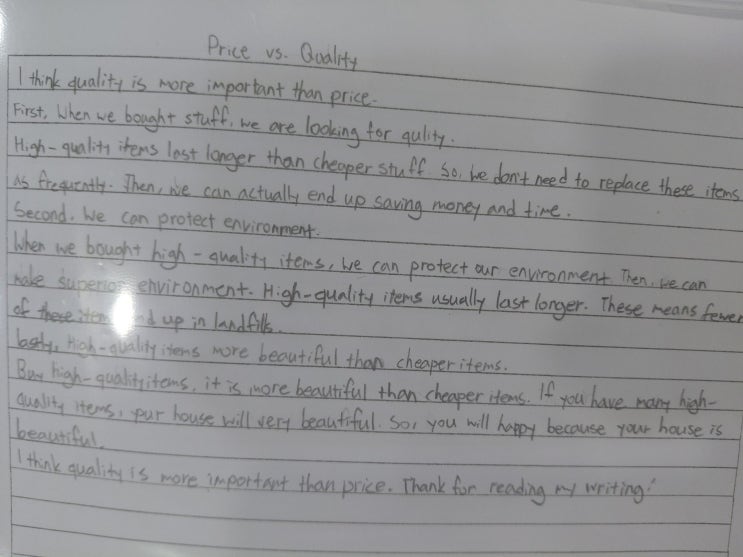 Price vs. Quality
I think quality is more important than price.
First, When we bought stuff, we are looking for qulity.
High-quality items last longer than cheaper stuff. So, we don't need to replace these items
as frequently. Then, we can actually end up saving money and time.
Second, We can protect environment.
When we bought high-quality items, we can protect our environment. Then, we can
make superior environment. High-quality items usually last longer. These means fewer
of these items end up in landfills.
lastly, High-quality items more beautiful than cheaper items.
Buy high-quality items, it is more beautiful than cheaper items. If you have many high-
quality items, your house will very beautiful. So, you will happy because your house is
beautiful.
I think quality is more important than price. Thank for reading my writing!